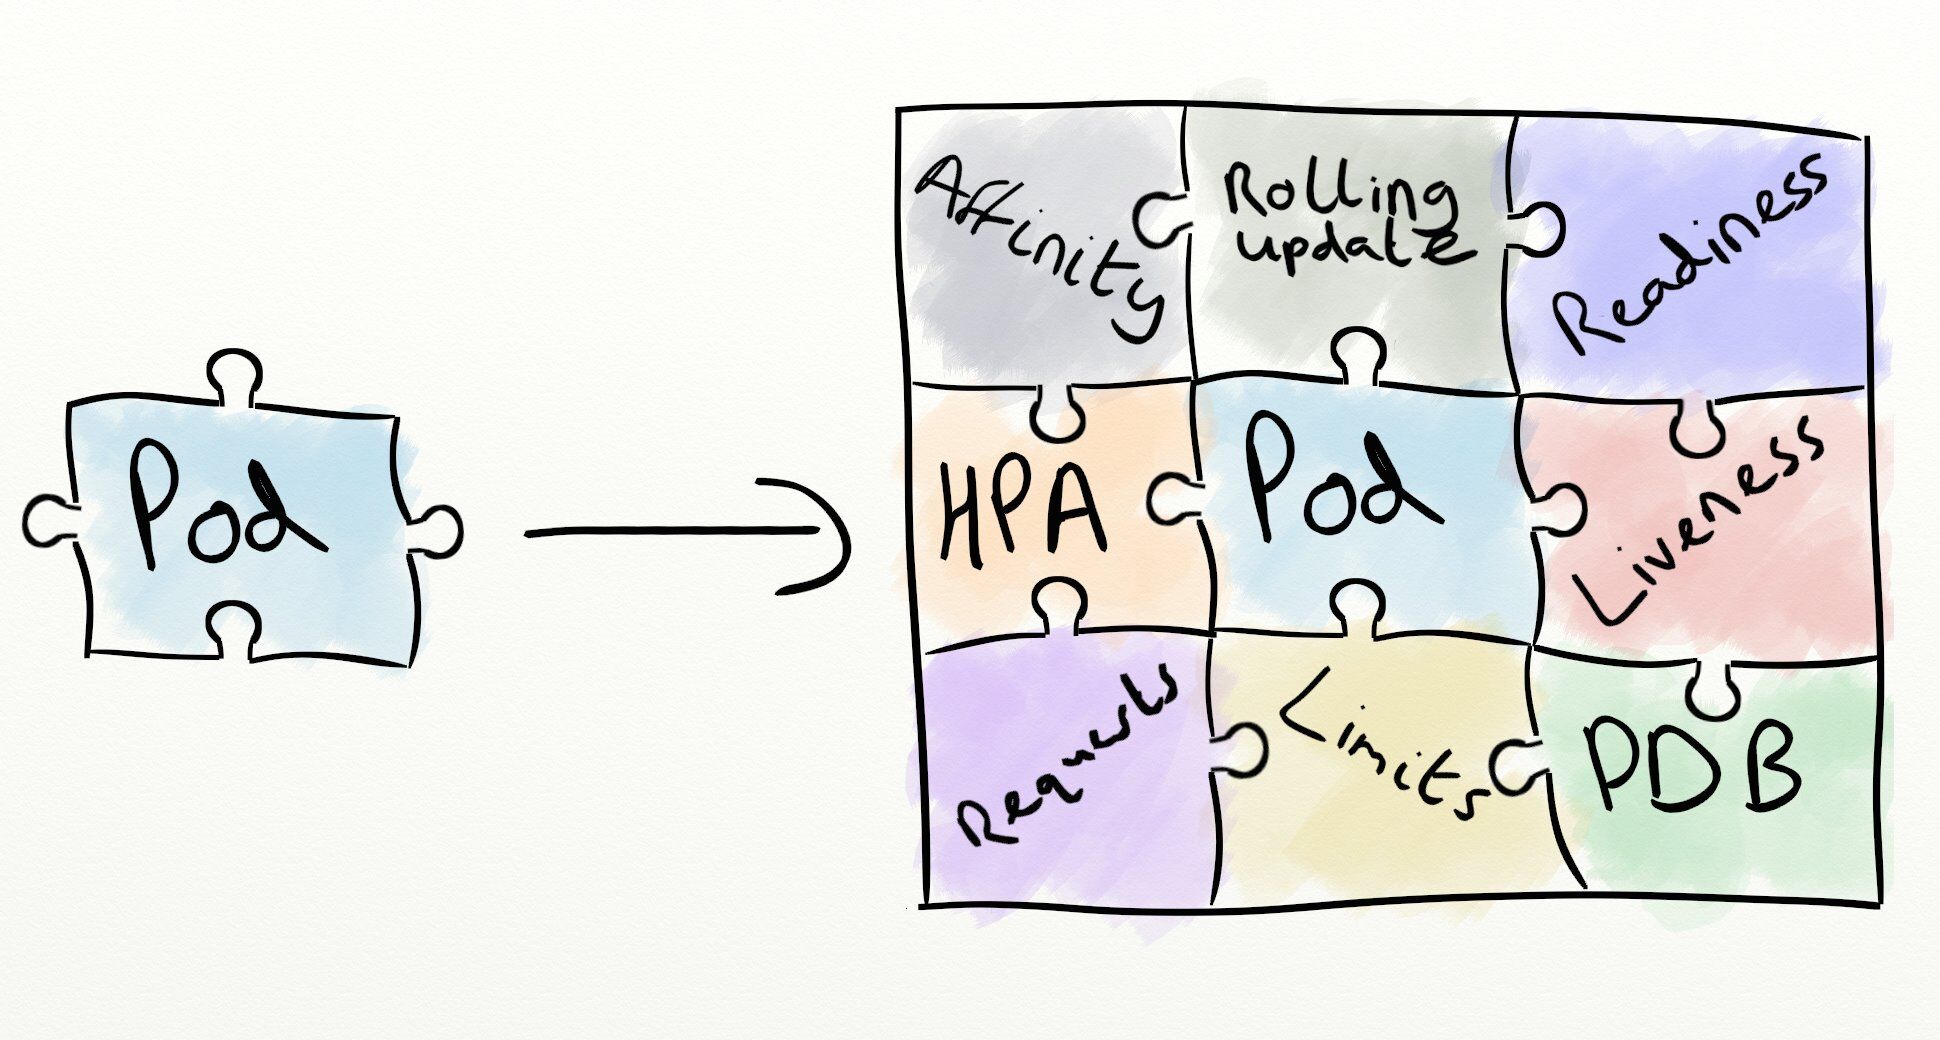 Pod
Affinity
Rolling
update
Readiness
HPA
Pod
Liveness
Requests
Limits
PDB